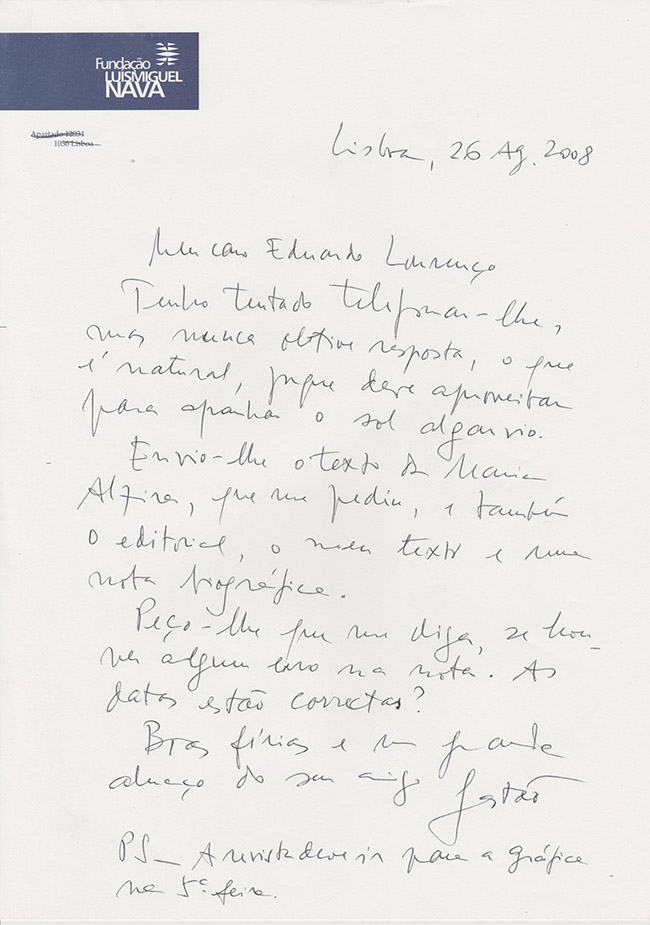 Fundação
LUÍSMIGUEL
NAVA
Apartado 12034
1050 Lisboa
Lisboa, 26 Ag. 2008
Meu caro Eduardo Lourenço
Tenho tentado telefonar-lhe,
mas nunca obtive resposta, o que
é natural, porque deve aproveitar
para apanhar o sol algarvio.
Envio-lhe o texto da Maria
Alzira, que me pediu, e também
o editorial, o meu texto e uma
nota biográfica.
Peço-lhe que me diga, se hou-
ver algum erro na nota. As
datas estão correctas?
Boas férias e um grande
abraço do seu amigo Gastão
PS_ A revista deve ir para a gráfica
na 5ª feira.